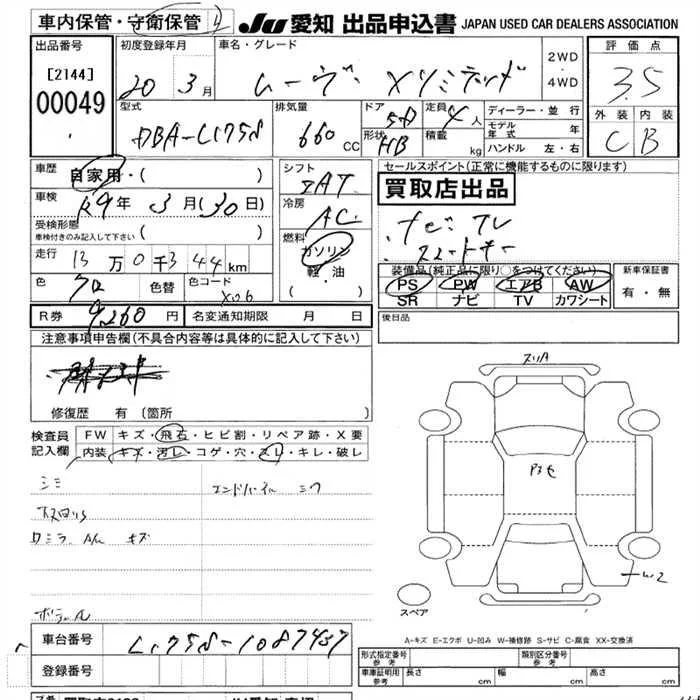 車内保管・守衛保管
JU 愛知 出品申込書 JAPAN USED CAR DEALERS ASSOCIATION
出品番号 [2144] 00049
初度登録年月 20 3月
車名・グレード ムーヴ Xリミテッド
2WD・4WD
評価点 3.5
外装 内装
C B
型式 DBA-L175S
排気量 660 CC
ドア 5D
形状 HB
定員 4人
積載 kg
ディーラー・並行
モデル年式 年
ハンドル 左・右
車歴 自家用・( )
車検 R9年3月(30日)
受検形態
車検付きのみ記入して下さい ( )
走行 13万0千344km
色 クロ 色替 色コード X06
シフト IAT
冷房 AC
燃料 ガソリン・軽油・( )
セールスポイント(正常に機能するものに限ります)
買取店出品
ナビ TV
スマートキー
装備品(純正品に限り○をつけてください)
PS PW エアB AW
SR ナビ TV カワシート
新車保証書 有・無
R券 9,260円 名変通知期限 月 日
後日品
注意事項申告欄(不具合内容等は具体的に記入して下さい)
修復歴 有 (箇所 )
検査員記入欄
FW キズ・飛石・ヒビ割・リペア跡・X要
内装 キズ・汚レ・コゲ・穴・スレ・キレ・破レ
シミ
キズ
スリA
W2
スペア
A-キズ E-エクボ U-凹み W-補修跡 S-サビ C-腐食 XX-交換済
車台番号 L175S-1087437
登録番号
形式指定番号 参考
類別区分番号 参考
車庫証明用 参考 長さ cm 幅 cm 高さ cm